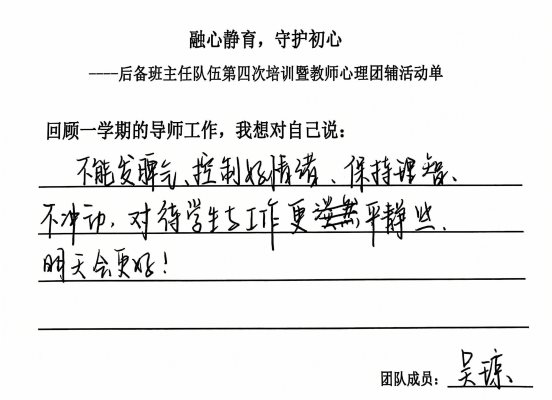 融心静育，守护初心
----后备班主任队伍第四次培训暨教师心理团辅活动单
回顾一学期的导师工作，我想对自己说：
不能发脾气、控制好情绪、保持理智、
不冲动，对待学生与工作更淡然平静些、
明天会更好！
团队成员：吴琼、